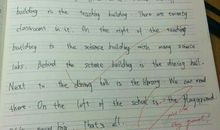 building is the teaching building. There are twenty
classrooms in it. On the right of the teaching
building is the science building with many science
labs. Behind the science building is the dining hall.
Next to the dining hall is the library. We can read
there. On the left of the school is the playground
That's all.